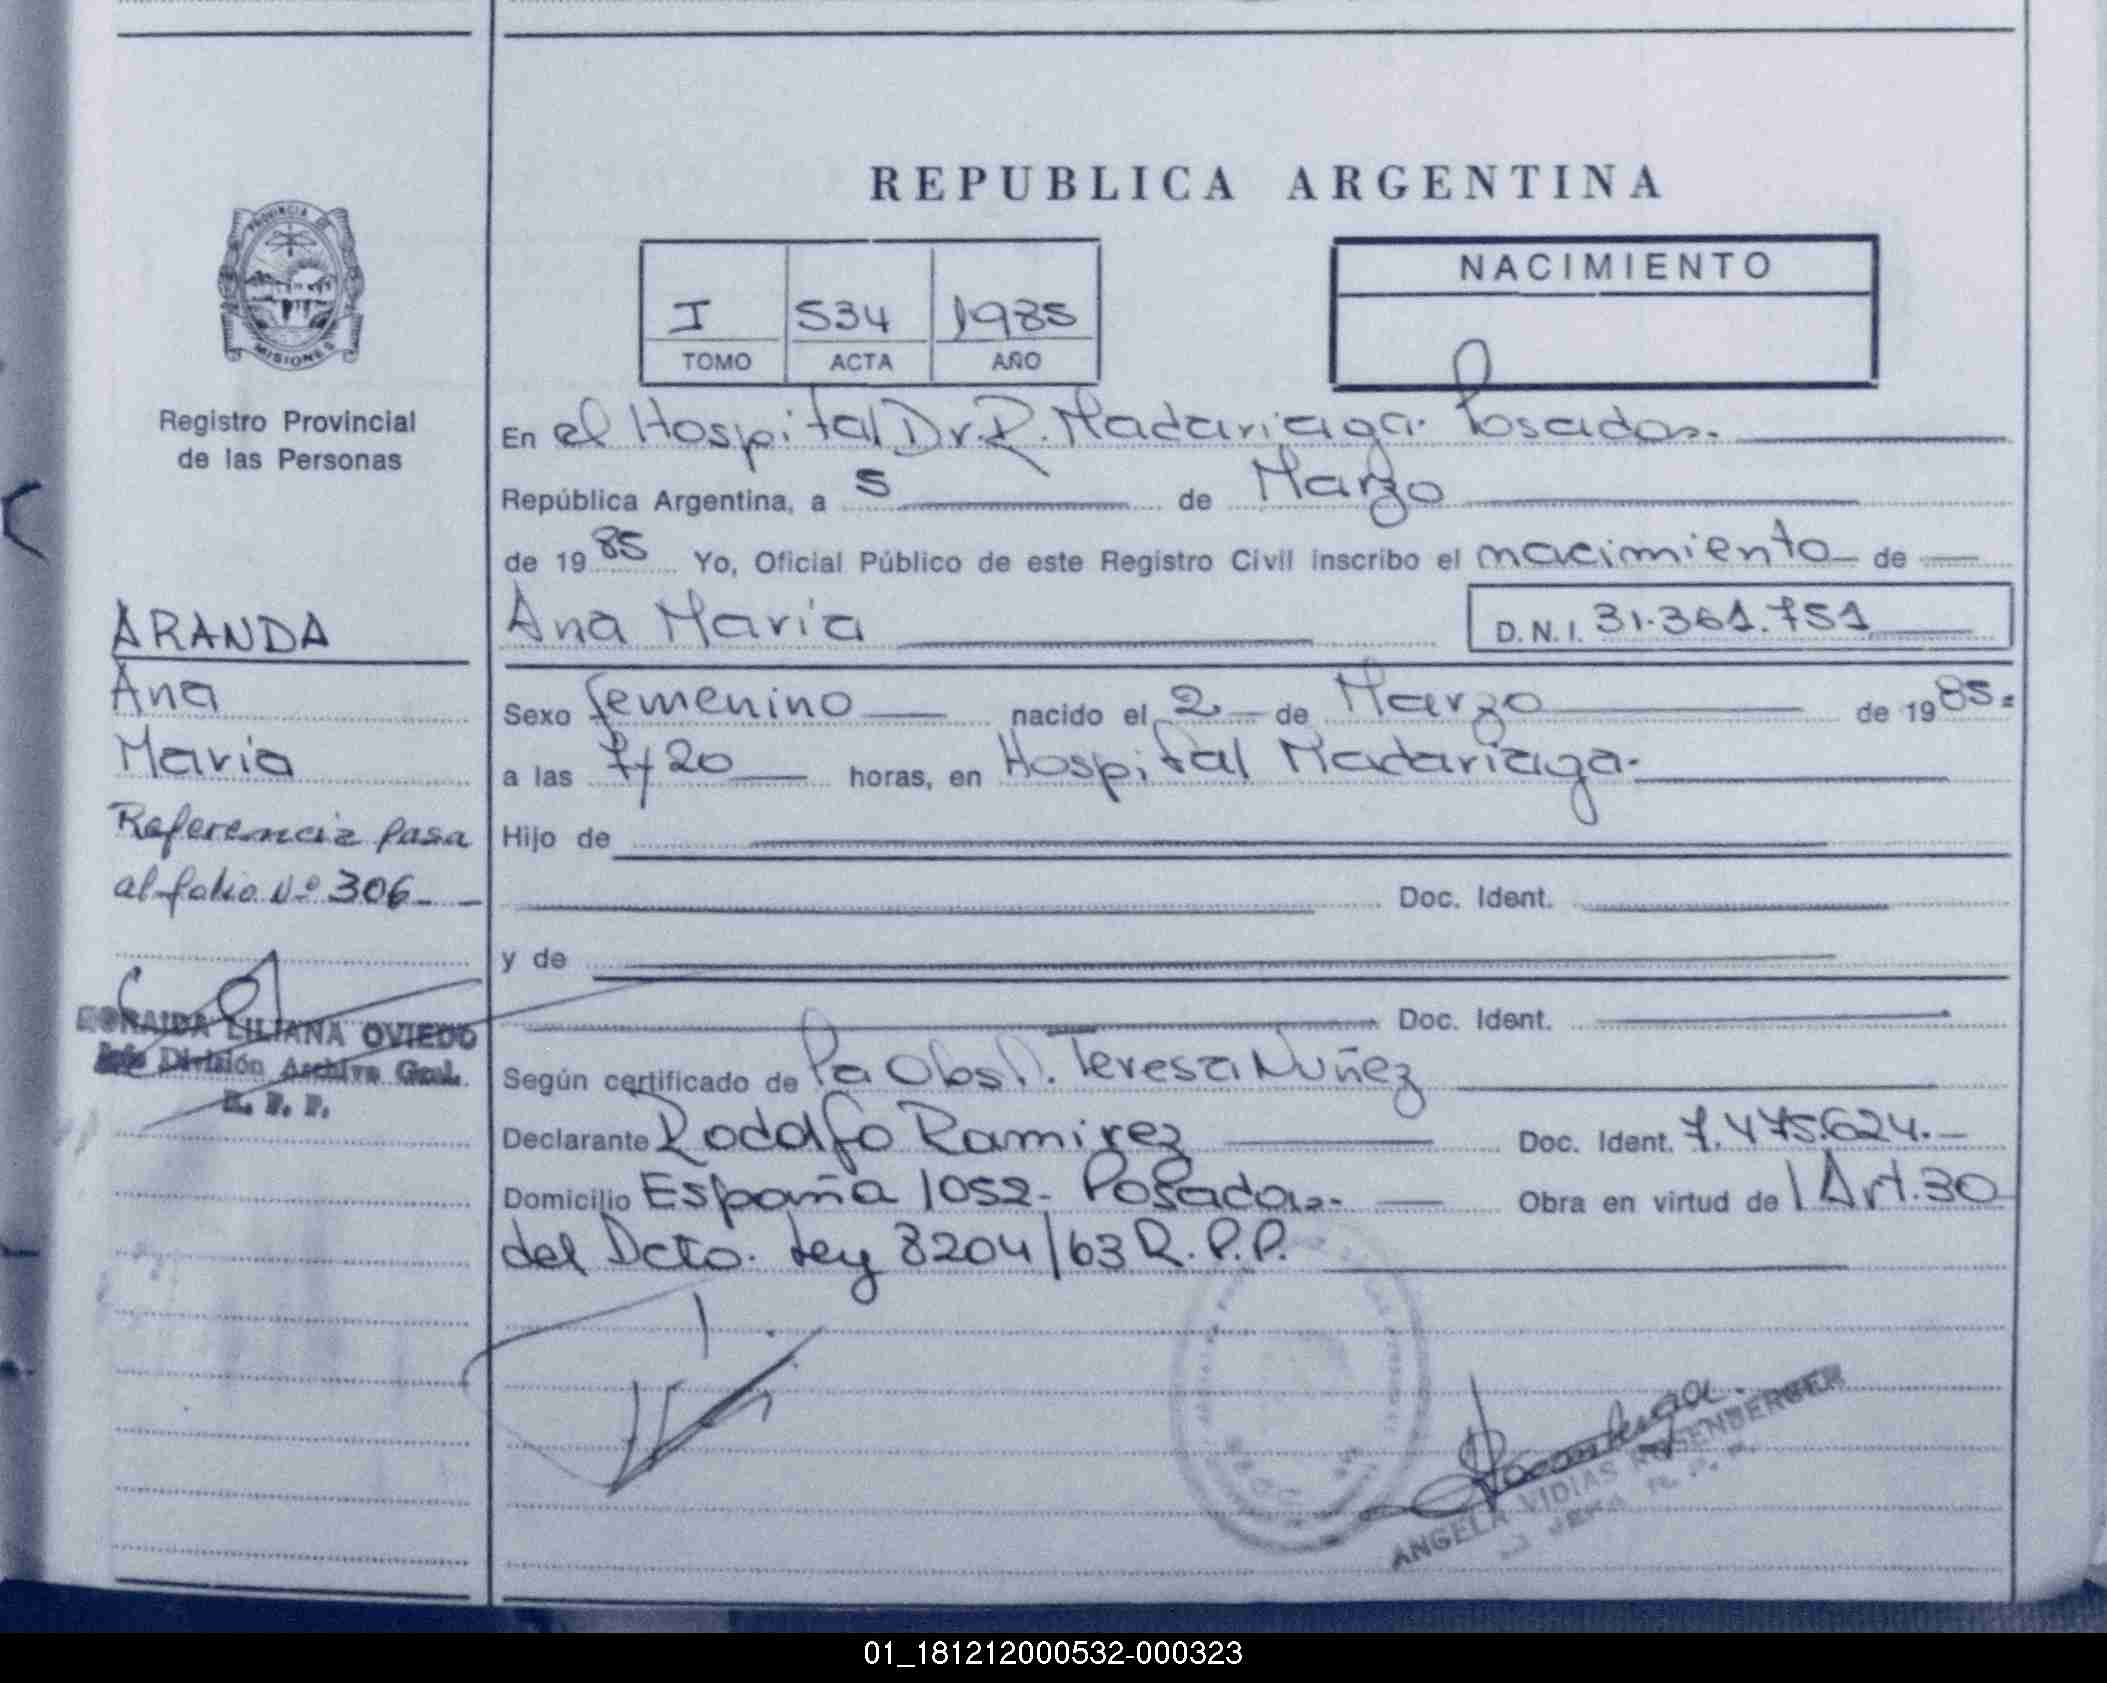 REPUBLICA ARGENTINA
PROVINCIA DE
MISIONES
Registro Provincial
de las Personas
I 534 1985
TOMO ACTA AÑO
NACIMIENTO
En el Hospital Dr. R. Madariaga. Posadas.
República Argentina, a 5 de Marzo
de 1985 Yo, Oficial Público de este Registro Civil inscribo el nacimiento de
Ana Maria D.N.I. 31.361.751
Sexo femenino nacido el 2 de Marzo de 1985.
a las 7,20 horas, en Hospital Madariaga.
Hijo de
Doc. Ident.
y de
Doc. Ident.
Según certificado de Pa Obst. Teresa Nuñez
Declarante Rodolfo Ramirez Doc. Ident. 7.475.624.
Domicilio España 1052. Posadas. Obra en virtud de l Art. 30
del Dcto. Ley 8204/63 R.P.P.
ANGELA VIDIAS ROSENBERGER
JEFA R.P.P.
ARANDA
Ana
Maria
Referencia pasa
al folio Nº 306
LILIANA OVIEDO
Jefe División Archivo Gral.
R. P. P.
01_181212000532-000323